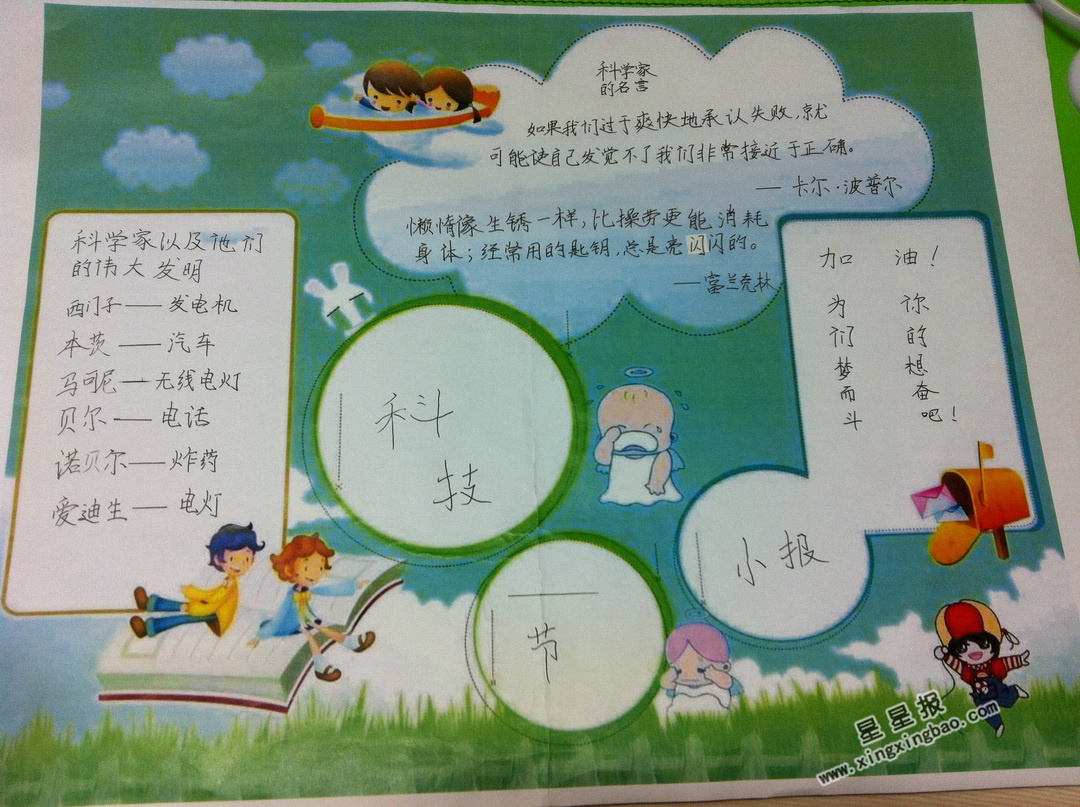 科学家
的名言
如果我们过于爽快地承认失败,就
可能使自己发觉不了我们非常接近于正确。
— 卡尔·波普尔
懒惰像生锈一样,比操劳更能消耗
身体;经常用的匙钥,总是亮闪闪的。
— 富兰克林
科学家以及他们
的伟大发明
西门子 — 发电机
本茨 — 汽车
马可尼 — 无线电灯
贝尔 — 电话
诺贝尔 — 炸药
爱迪生 — 电灯
加油!
为你
们的
梦想
而奋
斗吧!
科
技
节
小报
星星报
www.xingxingbao.com